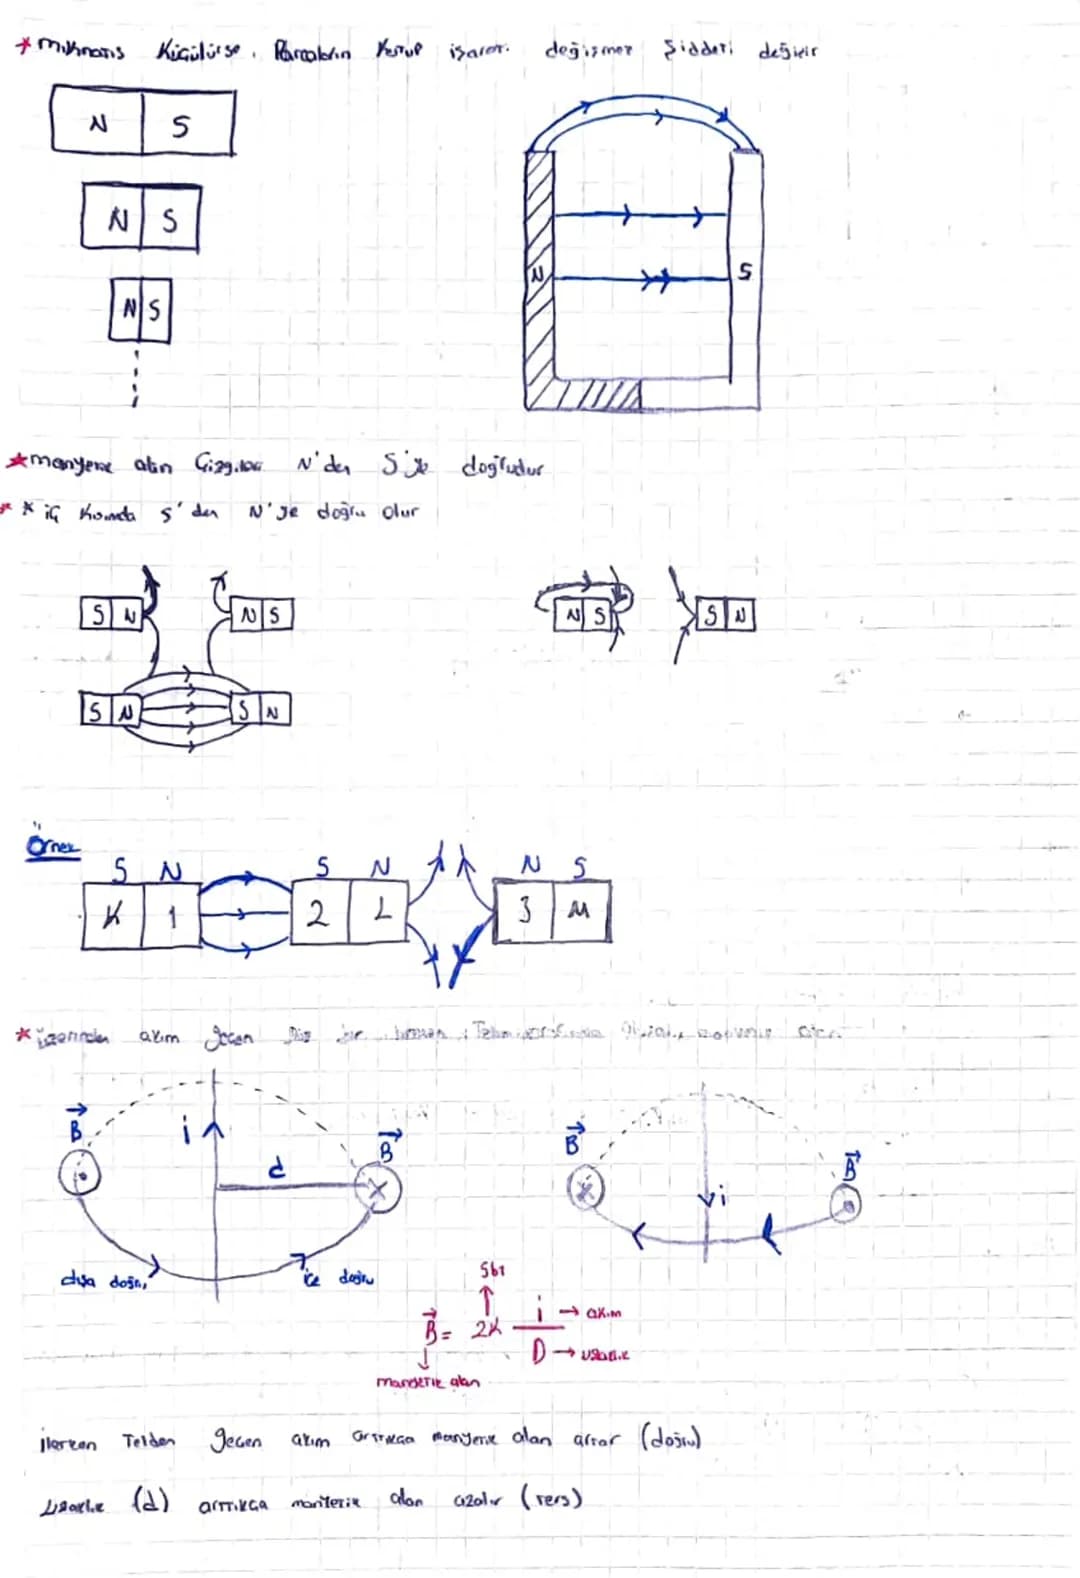 * mıknatıs Küçülürse, Parçaların Kutup işareti değişmez Şiddeti değişir
N S
N S
N S
N S
* manyetik alan Çizgileri N'den S'ye doğrudur
* * iç Kısımda S'den N'ye doğru olur
S N N S
N S S N
S N S N
Örnek
S N S N N S
K 1 2 L 3 M
* üzerinden akım geçen
B i B
d
B B
i
dışa doğru içe doğru
Sbt
B = 2K i → akım
D → uzaklık
manyetik alan
iletken Telden geçen akım arttıkça manyetik alan artar (doğru)
uzaklık (d) arttıkça manyetik alan azalır (ters)